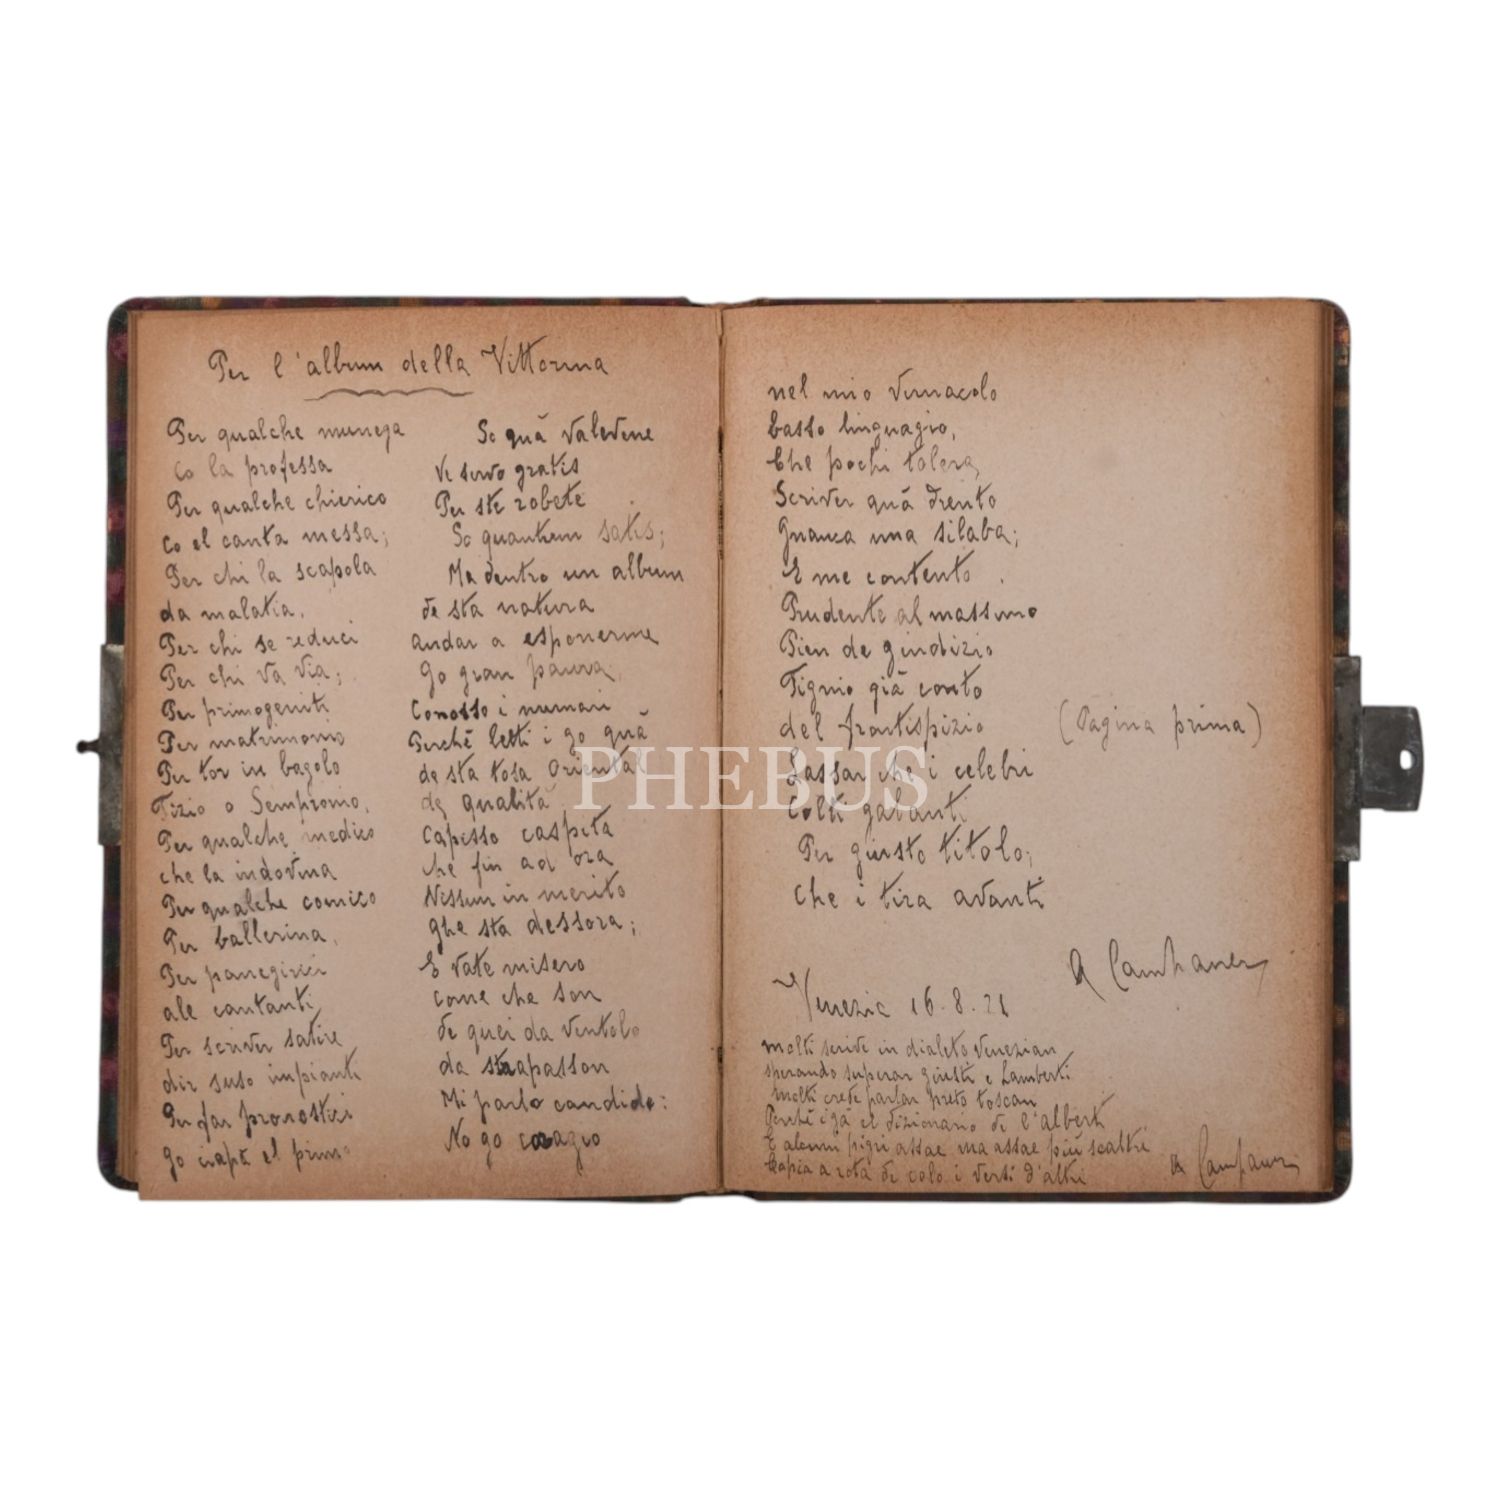 Per l'album della Vittorina
Per qualche munega
Co la professa
Per qualche chierico
Co el canta messa;
Per chi la scapola
da malatia,
Per chi se reduci
Per chi va via;
Per primogeniti
Per matrimonio
Per tor in bagolo
Tizio o Sempronio,
Per qualche medico
che la indovina
Per qualche comico
Per ballerina,
Per panegirici
ale cantanti
Per scriver satire
dir suso impianti
Per far pronostici
go ciapà el primo
So quà valevene
Ve servo gratis
Per ste robete
So quantum satis;
Ma dentro un album
de sta natura
andar a esponerme
Go gran paura,
Conosso i numari
Perché letti i go quà
de sta tosa Oriental
de qualità
Capisso caspita
che fin ad ora
Nissun in merito
ghe sta dessora;
E vate misero
come che son
de quei da ventolo
da strapasson
Mi parlo candido:
No go coragio
nel mio vernacolo
basso linguagio,
Che pochi tolera,
Scriver quà drento
Gnanca una silaba;
E me contento
Prudente al massimo
Pien de giudizio
Tignio già conto
del frontispizio (Pagina prima)
Lassar che i celebri
Colti galanti
Per giusto titolo,
che i tira avanti
A Campaner
Venezia 16.8.21
molti scrive in dialeto Venezian
sperando superar giusti e Lamberti
molti crede parlar preto toscan
Perché i gà el dizionario de l'alberti
E alcuni pigri assae ma assae più scaltri
Copia a rota de colo i versi d'altri
A Campaner
PHEBUS